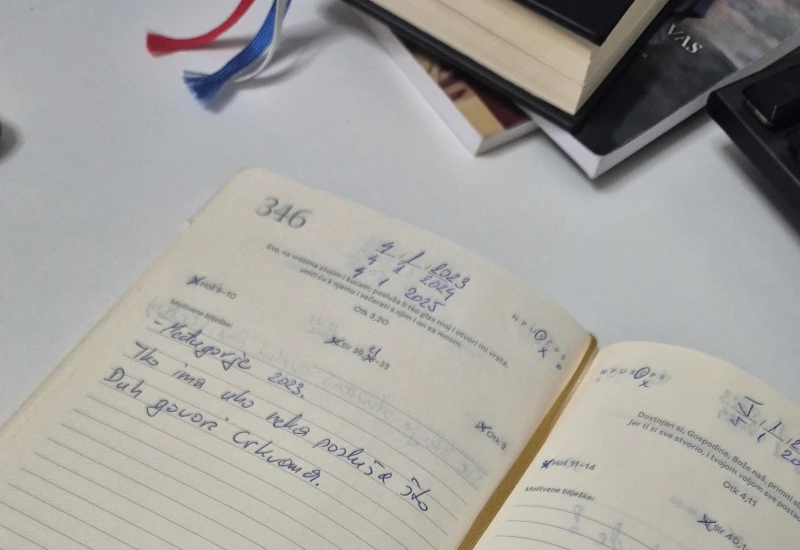 VAS
346
1 1 2023
4 1 2024
4 1 2025
Evo, na vratima stojim i kucam; posluša li tko glas moj i otvori mi vrata,
unići ću k njemu i večerati s njim i on sa mnom.
Otk 3,20
Hoš 8-10
Molitvene bilješke:
Otk 3
- Međugorje 2023.
Tko ima uho neka posluša što
Duh govori Crkvama.
N P U S Č P S
Dostojan si, Gospodine, Bože naš, primiti
jer ti si sve stvorio, i tvojom voljom sve
Otk 4,11
Hoš 11-14
Molitvene bilješke:
Sir 40,1